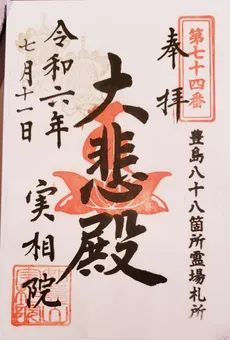 第七十四番
奉拝
豊島八十八箇所霊場札所
大悲殿
令和六年
七月十一日
実相院